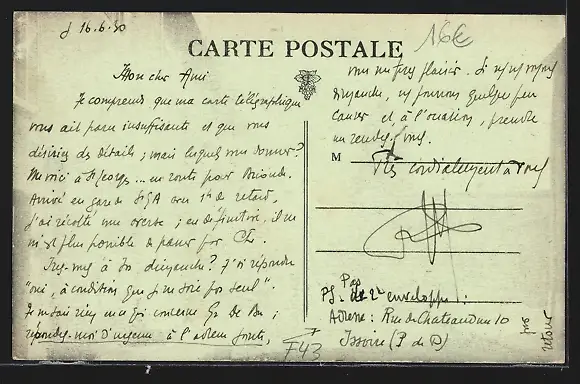 16.6.30
16€
CARTE POSTALE
Mon cher Ami
Je comprends que ma carte télégraphique
vous ait paru insuffisante et que vous
désiriez des détails ; mais lesquels vous donner ?
Me voici à St Georges ... en route pour Brioude.
Arrivé en gare de St GA avec 1h de retard,
j'ai récolté une averse ; en définitive, il ne
m'est plus possible de passer par
Irez-vous à dimanche ? J'ai répondu
"oui, à condition que je ne sois pas seul".
Je ne sais rien en ce qui concerne ;
répondez-moi d'urgence à l'adresse jointe,
F43
vous me ferez plaisir. Si
Dimanche, ns pourrons quelque peu
causer et à l'occasion, prendre
un rendez-vous.
M
Très cordialement à vous
PS. Pas de 2e enveloppe :
Adresse : Rue de Chateaudun 10
Issoire (P. de D)
retour